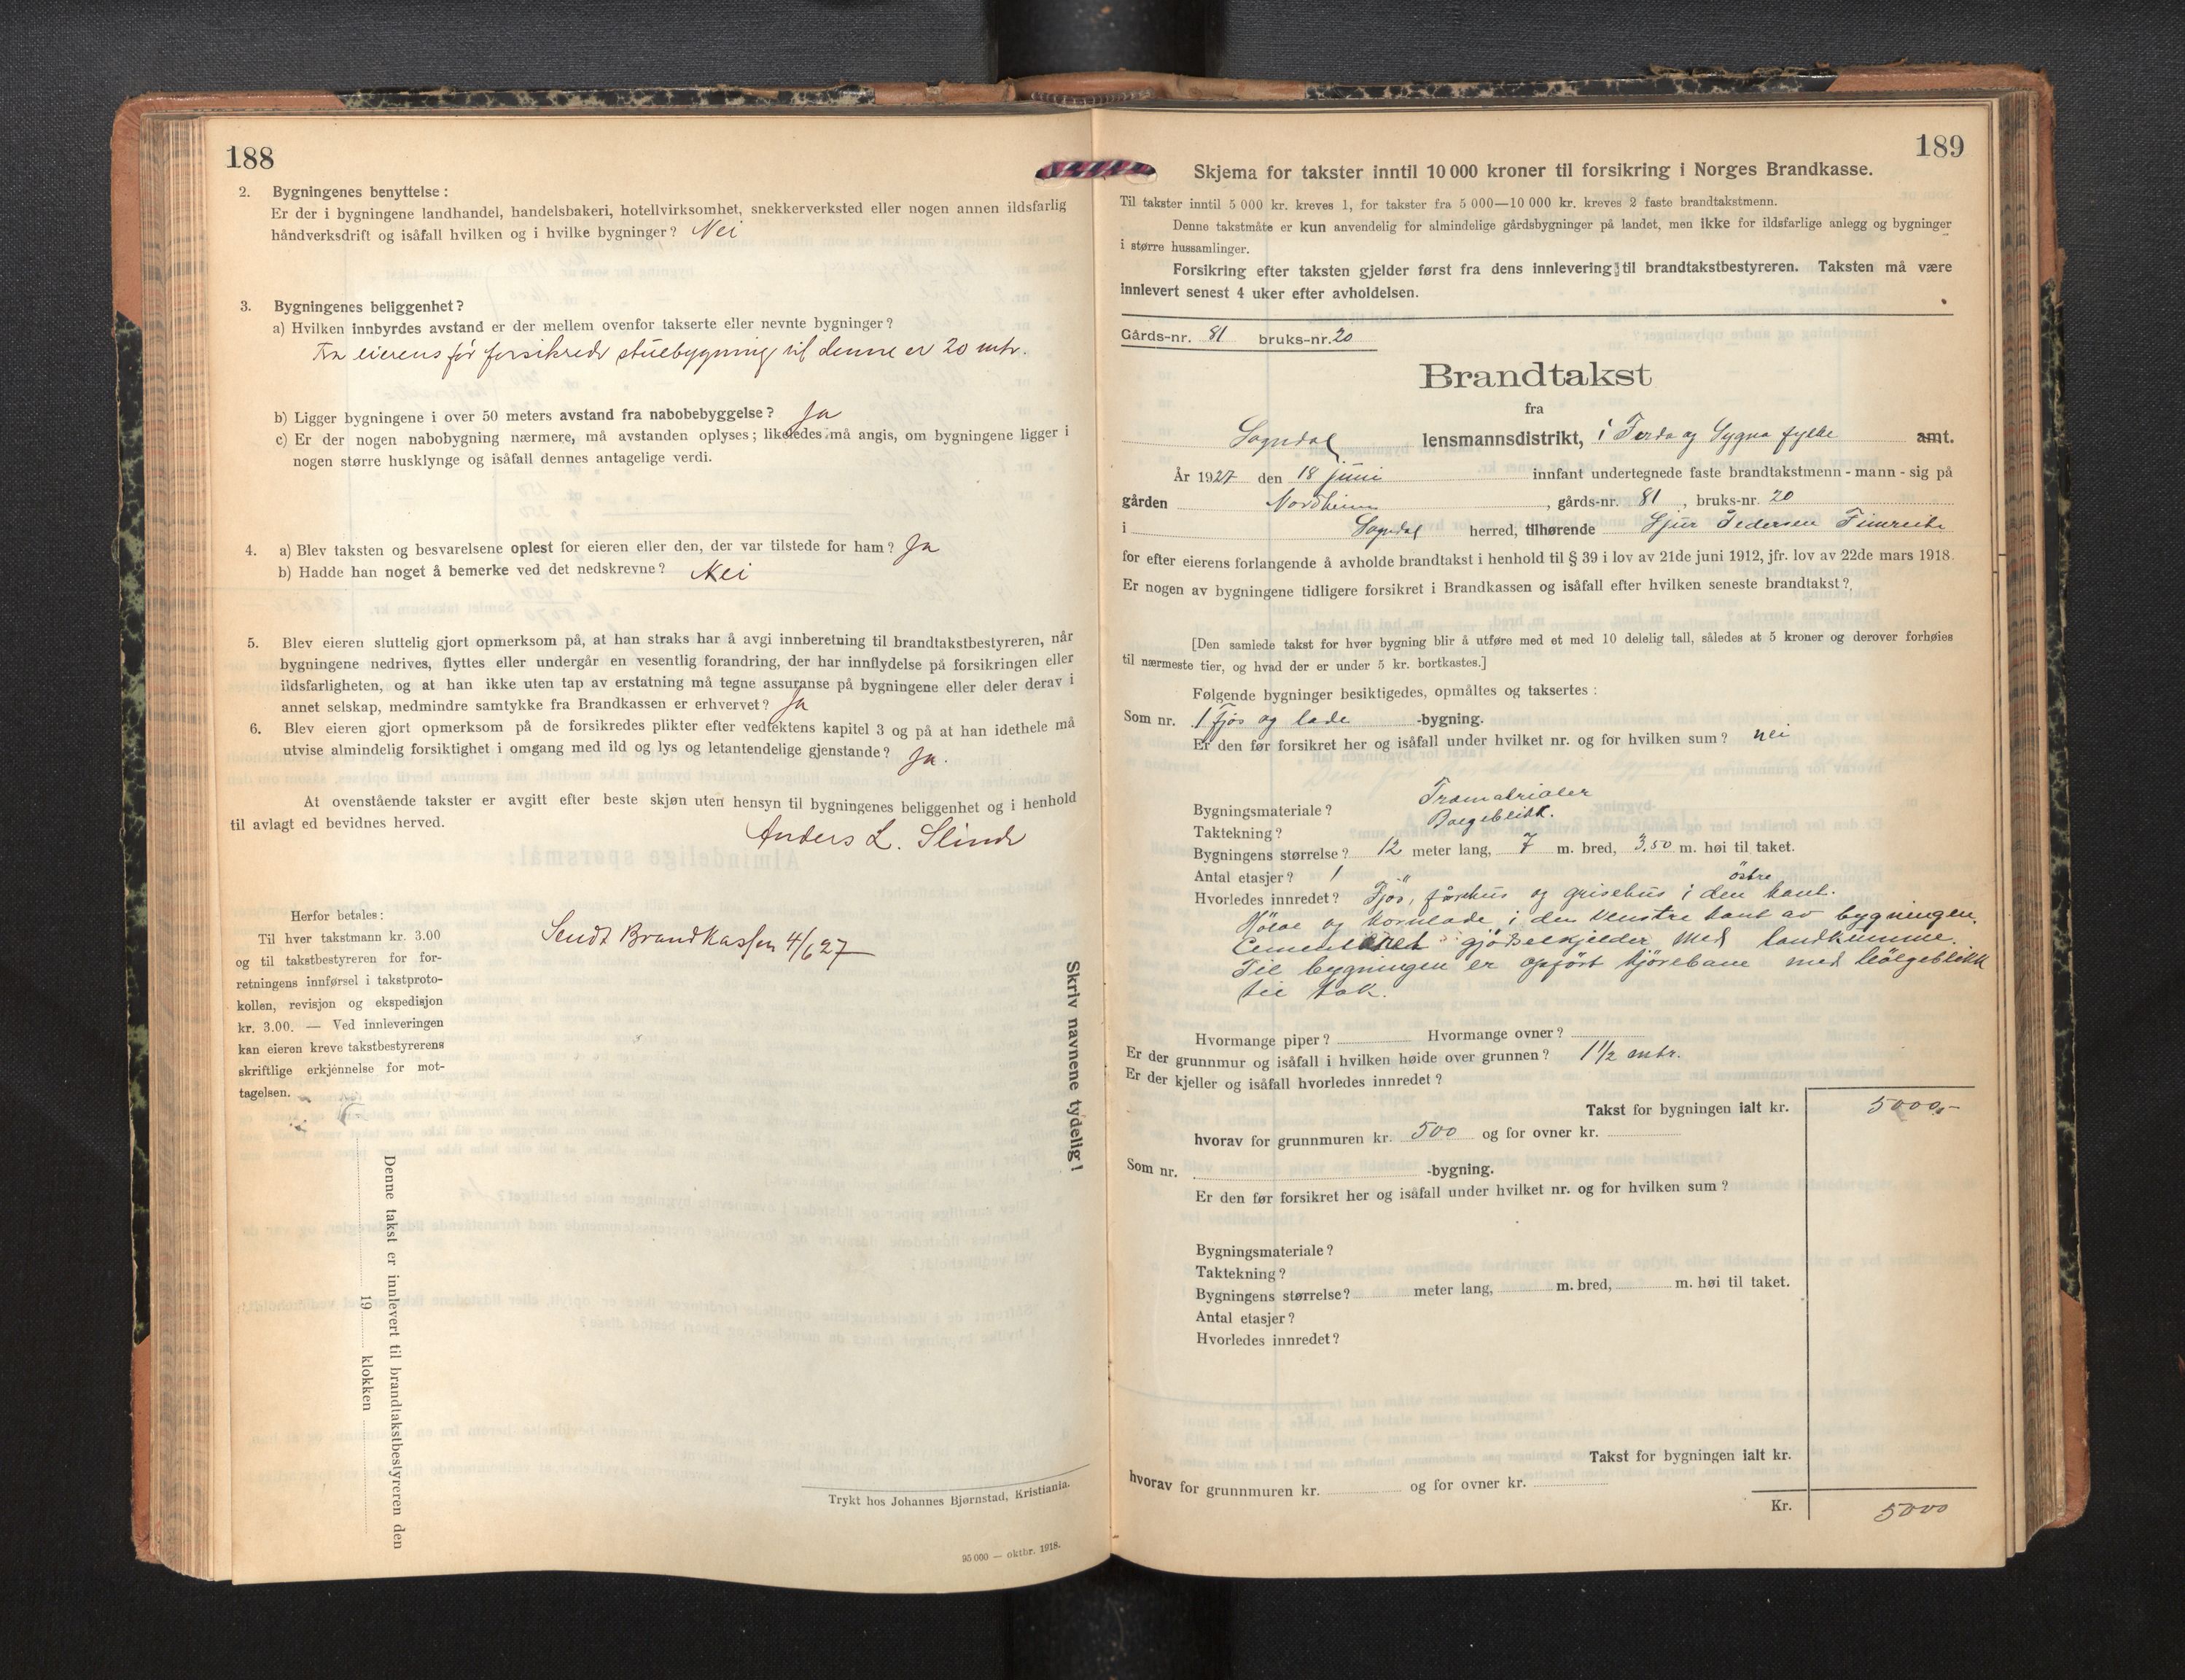 188
2. Bygningenes benyttelse:
Er der i bygningene landhandel, handelsbakeri, hotellvirksomhet, snekkerverksted eller nogen annen ildsfarlig
håndverksdrift og isåfall hvilken og i hvilke bygninger? Nei
3. Bygningenes beliggenhet?
a) Hvilken innbyrdes avstand er der mellem ovenfor takserte eller nevnte bygninger?
Fra eierens før forsikrede stuebygning til denne er 20 mtr.
b) Ligger bygningene i over 50 meters avstand fra nabobebyggelse? Ja
c) Er der nogen nabobygning nærmere, må avstanden oplyses; likeledes må angis, om bygningene ligger i
nogen større husklynge og isåfall dennes antagelige verdi.
4. a) Blev taksten og besvarelsene oplest for eieren eller den, der var tilstede for ham? Ja
b) Hadde han noget å bemerke ved det nedskrevne? Nei
5. Blev eieren sluttelig gjort opmerksom på, at han straks har å avgi innberetning til brandtakstbestyreren, når
bygningene nedrives, flyttes eller undergår en vesentlig forandring, der har innflydelse på forsikringen eller
ildsfarligheten, og at han ikke uten tap av erstatning må tegne assuranse på bygningene eller deler derav i
annet selskap, medmindre samtykke fra Brandkassen er erhvervet? Ja
6. Blev eieren gjort opmerksom på de forsikredes plikter efter vedtektens kapitel 3 og på at han idethele må
utvise almindelig forsiktighet i omgang med ild og lys og letantendelige gjenstande? Ja.
At ovenstående takster er avgitt efter beste skjøn uten hensyn til bygningenes beliggenhet og i henhold
til avlagt ed bevidnes herved.
Anders L. Slinde
Herfor betales:
Til hver takstmann kr. 3.00
og til takstbestyreren for for-
retningens innførsel i takstproto-
kollen, revisjon og ekspedisjon
kr. 3.00. — Ved innleveringen
kan eieren kreve takstbestyrerens
skriftlige erkjennelse for mot-
tagelsen.
Sendt Brandkassen 4/6 27
Skriv navnene tydelig!
Denne takst er innlevert til brandtakstbestyreren den
19 klokken
Trykt hos Johannes Bjørnstad, Kristiania.
95 000 — oktbr. 1918.
189
Skjema for takster inntil 10 000 kroner til forsikring i Norges Brandkasse.
Til takster inntil 5 000 kr. kreves 1, for takster fra 5 000—10 000 kr. kreves 2 faste brandtakstmenn.
Denne takstmåte er kun anvendelig for almindelige gårdsbygninger på landet, men ikke for ildsfarlige anlegg og bygninger
i større hussamlinger.
Forsikring efter taksten gjelder først fra dens innlevering til brandtakstbestyreren. Taksten må være
innlevert senest 4 uker efter avholdelsen.
Gårds-nr. 81 bruks-nr. 20
Brandtakst
fra
Sogndal lensmannsdistrikt, i Fjorda og Sygna fylke amt.
År 1927 den 18 juni innfant undertegnede faste brandtakstmenn - mann - sig på
gården Nordheim, gårds-nr. 81, bruks-nr. 20
i Sogndal herred, tilhørende Sjur Pedersen Fimreite
for efter eierens forlangende å avholde brandtakst i henhold til § 39 i lov av 21de juni 1912, jfr. lov av 22de mars 1918.
Er nogen av bygningene tidligere forsikret i Brandkassen og isåfall efter hvilken seneste brandtakst?
[Den samlede takst for hver bygning blir å utføre med et med 10 delelig tall, således at 5 kroner og derover forhøies
til nærmeste tier, og hvad der er under 5 kr. bortkastes.]
Følgende bygninger besiktigedes, opmåltes og taksertes:
Som nr. 1 fjøs og lade -bygning.
Er den før forsikret her og isåfall under hvilket nr. og for hvilken sum? nei
Bygningsmateriale? Træmatrialer
Taktekning? Bølgeblikk.
Bygningens størrelse? 12 meter lang, 7 m. bred, 3.50 m. høi til taket.
Antal etasjer? 1
østre
Hvorledes innredet? Fjøs, fårehus og grisehus i den kant.
Høilae og kornlade i den venstre kant av bygningen.
Cementeret gjødselkjelder med landkumme.
Til bygningen er opført kjørebane med bölgeblikk
til tak.
Hvormange piper? Hvormange ovner?
Er der grunnmur og isåfall i hvilken høide over grunnen? 1 1/2 mtr.
Er der kjeller og isåfall hvorledes innredet?
Takst for bygningen ialt kr. 5000,-
hvorav for grunnmuren kr. 500 og for ovner kr.
Som nr. -bygning.
Er den før forsikret her og isåfall under hvilket nr. og for hvilken sum?
Bygningsmateriale?
Taktekning?
Bygningens størrelse? meter lang, m. bred, m. høi til taket.
Antal etasjer?
Hvorledes innredet?
Takst for bygningen ialt kr.
hvorav for grunnmuren kr. og for ovner kr.
Kr. 5000